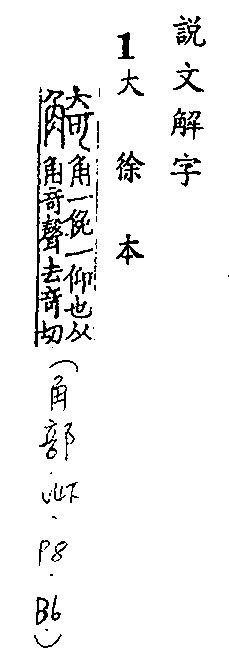 說文解字
1大徐本
觭角一俛一仰也从
角奇聲去奇切
(角部.四下.P8.B6)